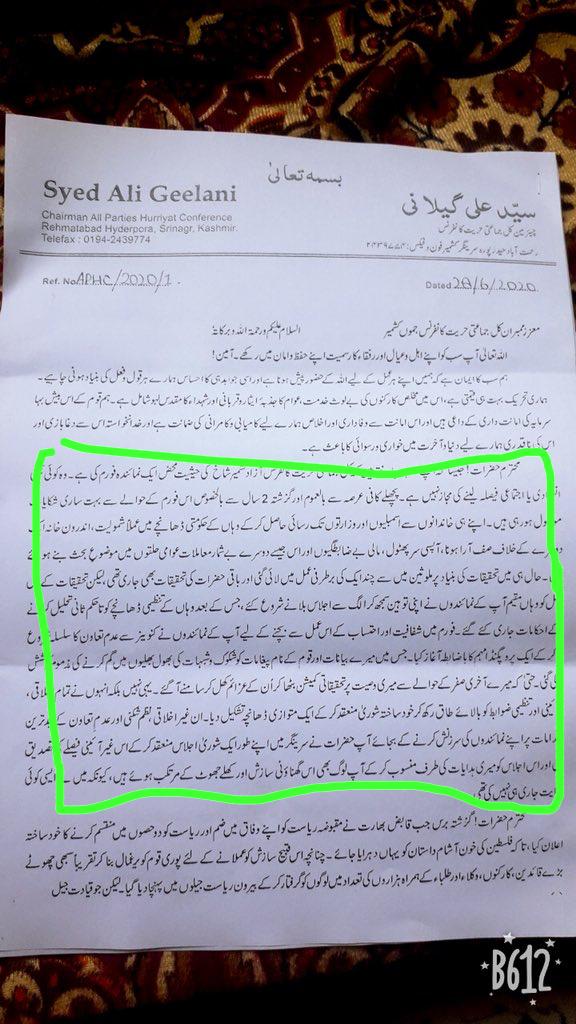 بسمہ تعالیٰ
Syed Ali Geelani
سیّد علی گیلانی
Chairman All Parties Hurriyat Conference
چیئرمین کل جماعتی حریت کانفرنس
Rehmatabad Hyderpora, Srinagr, Kashmir.
رحمت آباد حیدرپورہ سرینگر کشمیر فون و فیکس: ۲۴۳۹۷۷۴
Telefax : 0194-2439774
Ref. No APHC/2020/1.
Dated 28/6/2020
معزز ممبران کل جماعتی حریت کانفرنس جموں کشمیر السلام علیکم ورحمۃ اللہ وبرکاتہٗ
اللہ تعالیٰ آپ سب کو اپنے اہل وعیال اور رفقاء کار سمیت اپنے حفظ وامان میں رکھے۔ آمین!
ہم سب کا ایمان ہے کہ ہمیں اپنے ہر عمل کے لیے اللہ کے حضور پیش ہونا ہے اور اسی جوابدہی کا احساس ہمارے ہر قول وفعل کی بنیاد ہونی چاہیے۔
ہماری تحریک بہت ہی قیمتی ہے، اس میں مخلص کارکنوں کی بے لوث خدمت، عوام کا جذبہ ایثار وقربانی اور شہداء کا مقدس لہو شامل ہے۔ ہم قوم کے اس بیش بہا
سرمایہ کی امانت داری کے داعی ہیں اور اس امانت سے وفاداری اور اخلاص ہمارے لیے کامیابی وکامرانی کی ضمانت ہے اور خدانخواستہ اس سے دغا بازی اور
اس کی ناقدری ہمارے لیے دنیا وآخرت میں خواری ورسوائی کا باعث ہے۔
محترم حضرات! جیسا کہ آپ حریت کانفرنس آزاد کشمیر شاخ کی حیثیت محض ایک نمائندہ فورم کی ہے۔ وہ کوئی
یا اجتماعی فیصلہ لینے کی مجاز نہیں ہے۔ پچھلے کافی عرصہ سے بالعموم اور گزشتہ 2 سال سے بالخصوص اس فورم کے حوالے سے بہت ساری شکایات
موصول ہورہی ہیں۔ اپنے ہی خاندانوں سے اسمبلیوں اور وزارتوں تک رسائی حاصل کرکے وہاں کے حکومتی ڈھانچے میں عملاً شمولیت، اندرون خانہ ایک
دوسرے کے خلاف صف آرا ہونا، آپسی سر پھٹول، مالی بے ضابطگیوں اور اس جیسے دوسرے بے شمار معاملات عوامی حلقوں میں موضوع بحث بنے ہوئے
۔ حال ہی میں تحقیقات کی بنیاد پر ملوثین میں سے چند ایک کی برطرفی عمل میں لائی گئی اور باقی حضرات کی تحقیقات بھی جاری تھی، لیکن تحقیقات کے
کو وہاں مقیم آپ کے نمائندوں نے اپنی توہین سمجھ کر الگ سے اجلاس بلانے شروع کئے، جس کے بعد وہاں کے تنظیمی ڈھانچے کو تاحکم ثانی تحلیل کرنے
کے احکامات جاری کئے گئے۔ فورم میں شفافیت اور احتساب کے اس عمل سے بچنے کے لیے آپ کے نمائندوں نے کنوینر سے عدم تعاون کا سلسلہ شروع
کرکے ایک پروپگنڈا مہم کا باضابطہ آغاز کیا۔ جس میں میرے بیانات اور قوم کے نام پیغامات کو شکوک وشبہات کی بھول بھلیوں میں گم کرنے کی مذموم کوشش
کی گئی۔ حتیٰ کہ میرے آخری سفر کے حوالے سے میری وصیت پر تحقیقاتی کمیشن بٹھا کر اُن کے عزائم کھل کر سامنے آگئے۔ یہی نہیں بلکہ انہوں نے تمام اخلاقی،
آئینی اور تنظیمی ضوابط کو بالائے طاق رکھ کر خود ساختہ شوریٰ منعقد کرکے ایک متوازی ڈھانچہ تشکیل دیا۔ ان غیر اخلاقی، نظم شکنی اور عدم تعاون کے بدترین
اقدامات پر اپنے نمائندوں کی سرزنش کرنے کے بجائے آپ حضرات نے سرینگر میں اپنے طور ایک شوریٰ اجلاس منعقد کرکے اس غیر آئینی فیصلے کی تصدیق
اور اس اجلاس کو میری ہدایات کی طرف منسوب کرکے آپ لوگ بھی اس گھناؤنی سازش اور کھلے جھوٹ کے مرتکب ہوئے ہیں، کیونکہ میں نے ایسی کوئی
ہدایت جاری ہی نہیں کی تھی۔
محترم حضرات! گزشتہ برس جب قابض بھارت نے مقبوضہ ریاست کو اپنے وفاق میں ضم اور ریاست کو دو حصوں میں منقسم کرنے کا خود ساختہ
اعلان کیا، تاکہ فلسطین کی خون آشام داستان کو یہاں دہرایا جائے۔ چنانچہ اس قبیح سازش کو عملانے کے لئے پوری قوم کو یرغمال بنا کر تقریباً سبھی چھوٹے
بڑے قائدین، کارکنوں، وکلاء اور طلباء کے ہمراہ ہزاروں کی تعداد میں لوگوں کو گرفتار کرکے بیرون ریاست جیلوں میں پہنچا دیا گیا۔ لیکن جو قیادت جیل
B612